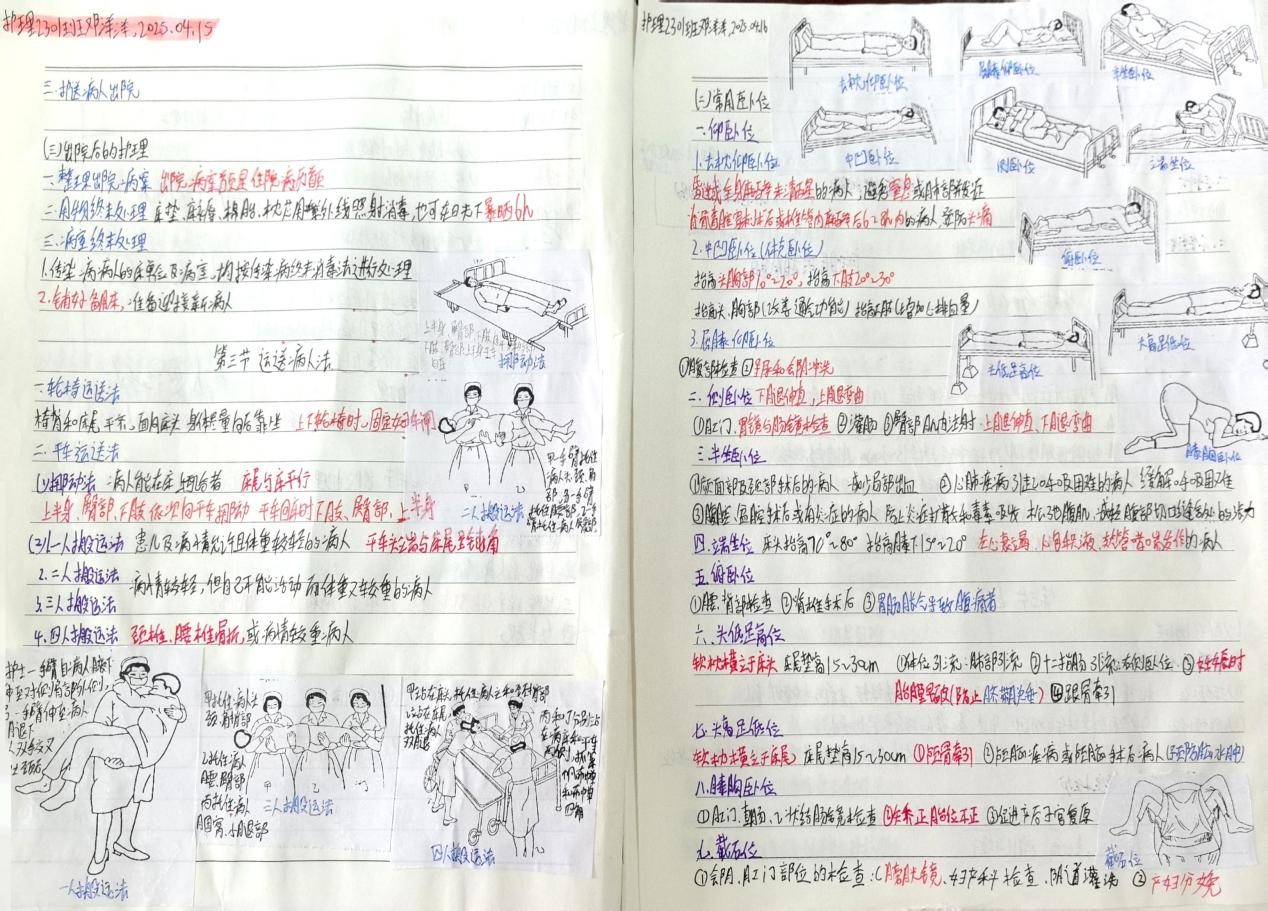 护理2301班邓洋洋,2025.04.15
三.护送病人出院
(三)出院后的护理
一.整理出院病案 出院病室首页是住院病历首页
二.用物终末处理 床垫、床褥、棉胎、枕芯用紫外线照射消毒,也可在日光下暴晒6h
三.病室终末处理
1.传染病病人的床单位及病室,均按传染病终末消毒法进行处理
2.铺好备用床,准备迎接新病人
挪动法
第三节 运送病人法
一.轮椅运送法
椅背和床尾平齐,面向床头 身体尽量向后靠坐 上下轮椅时,固定好车闸
二.平车运送法
(1)挪动法 病人能在床上配合者 床尾与床平行
上半身、臀部、下肢依次向平车挪动 平车回床时下肢、臀部、上半身
二人搬运法
(2)1.一人搬运法 患儿及病情允许且体重较轻的病人 平车头端与床尾呈钝角
2.二人搬运法 病情较轻,但自己不能活动而体重又较重的病人
3.三人搬运法
4.四人搬运法 颈椎、腰椎骨折,或病情较重病人
护士一手臂自病人腋下
一人搬运法
甲托住病人头、
颈、肩背部
乙托住病人
腰、臀部
丙托住病人
腘窝、小腿部
甲 乙 丙
三人搬运法
甲站在床头,托住病人头和颈肩部
乙站在床尾,
托住病人
双腿
四人搬运法
护理2301班邓洋洋,2025.04.16
去枕仰卧位
屈膝仰卧位
半坐卧位
中凹卧位
侧卧位
端坐位
俯卧位
头高足低位
头低足高位
膝胸卧位
(二)常用卧位
一.仰卧位
1.去枕仰卧位
昏迷或全身麻醉未清醒的病人,避免窒息或肺部并发症
椎管内麻醉后6~8h内的病人,预防头痛
2.中凹卧位(休克卧位)
抬高头胸部10°~20°,抬高下肢20°~30°
抬高头、胸部(改善通气功能) 抬高下肢(增加心排血量)
3.屈膝仰卧位
①腹部检查 ②导尿和会阴冲洗
二.侧卧位 下腿伸直,上腿弯曲
①肛门、胃镜与肠镜检查 ②灌肠 ③臀部肌内注射,上腿伸直、下腿弯曲
三.半坐卧位
①颜面部及颈部术后的病人 减少局部出血 ②心肺疾病引起呼吸困难的病人 缓解呼吸困难
③腹腔、盆腔术后或有炎症的病人 防止炎症扩散和毒素吸收 松弛腹肌,减轻腹部切口缝合处的张力
四.端坐位 床头抬高70°~80° 抬高膝下15°~20° 左心衰竭、心包积液、支气管哮喘发作的病人
五.俯卧位
①腰、背部检查 ②脊椎手术后 ③胃肠胀气导致腹痛者
六、头低足高位
软枕横立于床头 床尾垫高15~30cm ①体位引流:肺部引流 ②十二指肠引流:右侧卧位 ③妊娠时
胎膜早破(防止脐带脱垂) ④跟骨牵引
七.头高足低位
软枕横立于床尾,床尾垫高15~30cm ①颈骨牵引 ②颅脑疾病或颅脑手术后病人(预防脑水肿)
八.膝胸卧位
①肛门、直肠、乙状结肠镜检查 ②矫正胎位不正 ③促进产后子宫复原
九.截石位
①会阴、肛门部位的检查:(膀胱镜、妇产科检查、阴道灌洗 ②产妇分娩
截石位